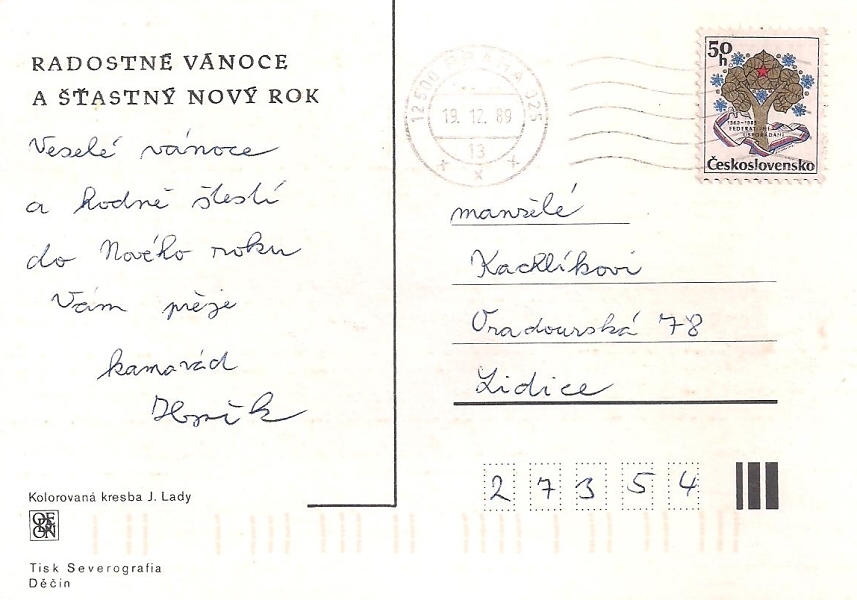 RADOSTNÉ VÁNOCE
A ŠŤASTNÝ NOVÝ ROK
Veselé vánoce
a hodně štestí
do Nového roku
Vám přeje
kamarád
Kolorovaná kresba J. Lady
Tisk Severografia
Děčín
12500 PRAHA 025
19.12.89
13
50 h
1968-1988
FEDERATIVNÍ
USPOŘÁDÁNÍ
Československo
manželé
Oradourská 78
Lidice
27354